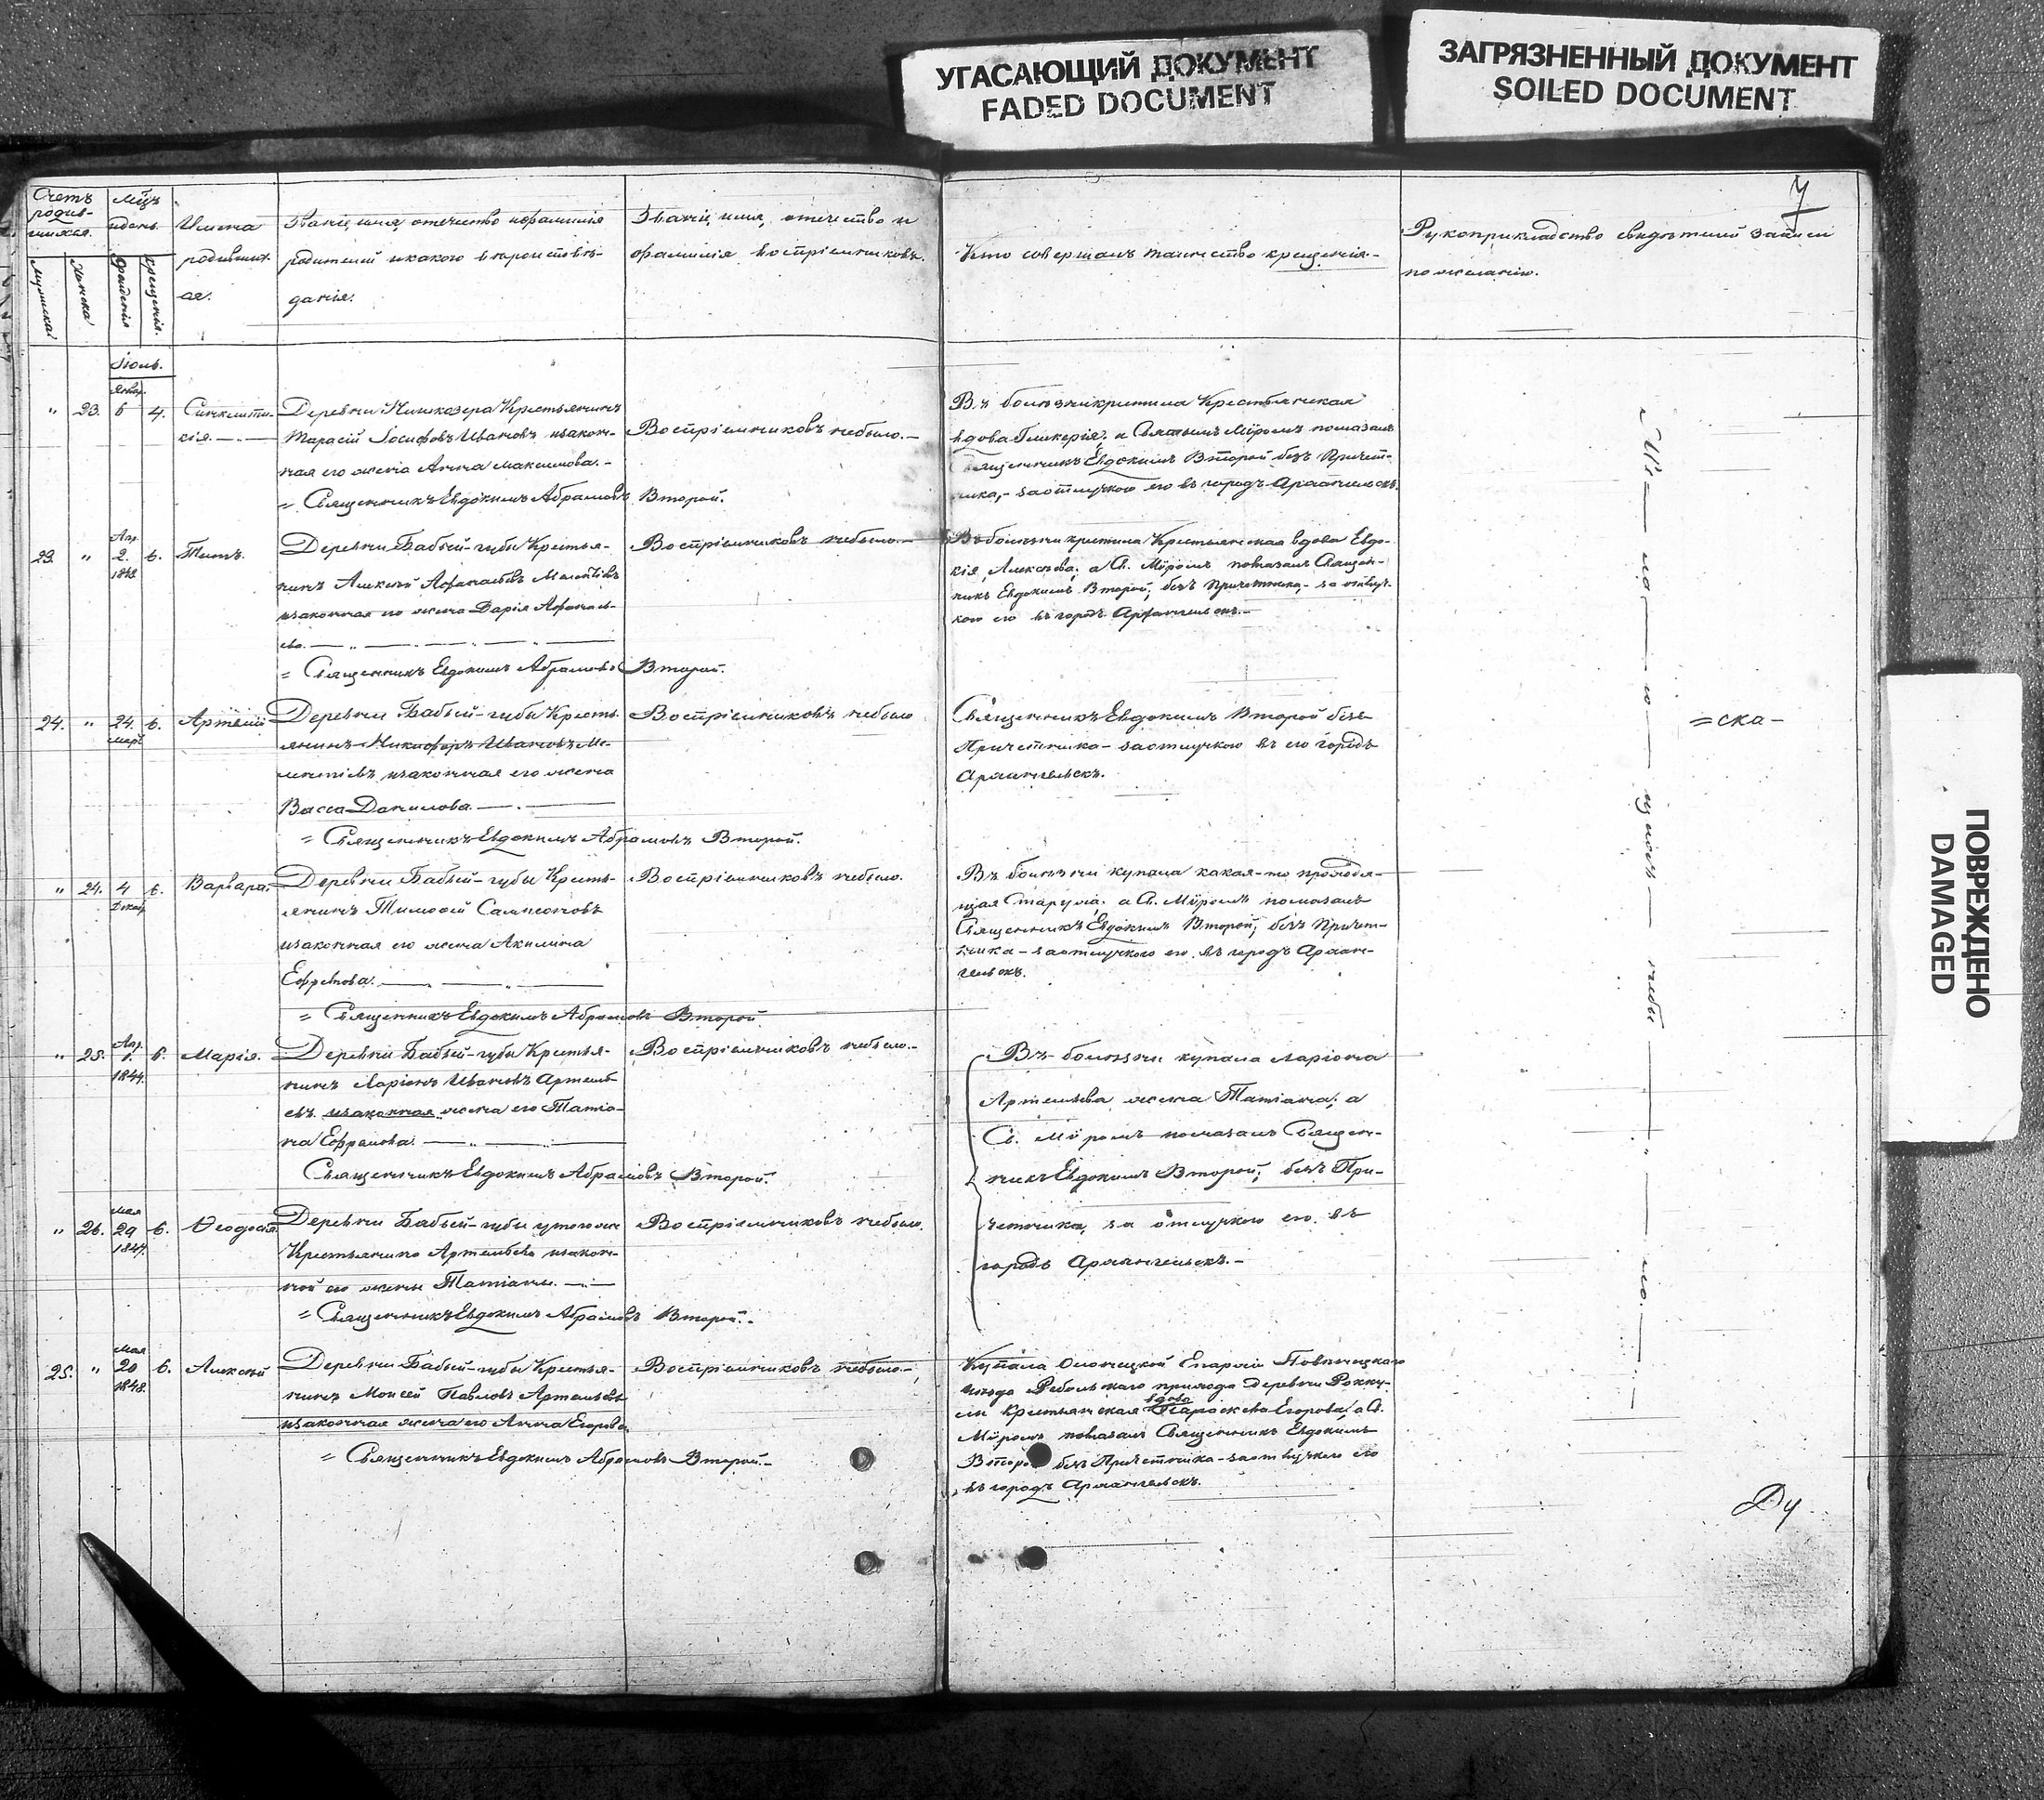 УГАСАЮЩИЙ ДОКУМЕНТ
FADED DOCUMENT
ЗАГРЯЗНЕННЫЙ ДОКУМЕНТ
SOILED DOCUMENT
ПОВРЕЖДЕНО
DAMAGED
7
Счетъ
родив-
шихся.
Мужска
Женска
Мѣсяцъ
и день.
Рожденія
Крещенія.
Имена
родивших-
ся.
Званіе, имя, отечество и фамилія
родителей и какого вѣроисповѣ-
данія.
Званіе, имя, отечество и
фамилія воспріемниковъ.
Кто совершалъ таинство крещенія.-
Рукоприкладство свидѣтелей записи
по желанію.
Іюль.
" 23. 6 4.
Синклити-
кія.
Деревни Кимасозера Крестьянинъ
Тарасій Іосифовъ Ивановъ и закон-
ная его жена Анна Максимова.-
= Священникъ Евдокимъ Абрамовъ Второй.
Воспріемниковъ небыло.-
Въ болѣзни крестила Крестьянская
вдова Гликерія, а Святымъ Мѵромъ помазалъ
Священникъ Евдокимъ Второй безъ Причет-
ника,- за отлучкою его въ городъ Архангельскъ.
23. " Апр. 2. 1843 6. Титъ.
Деревни Бабьей-губы Крестья-
нинъ Алексѣй Афанасьевъ
и законная его жена Дарія Афонась-
ева.
= Священникъ Евдокимъ Абрамовъ Второй.
Воспріемниковъ небыло.-
Въ болѣзни крестила Крестьянская вдова Евдо-
кія Алексѣева; а Св. Мѵромъ помазалъ Священ-
никъ Евдокимъ Второй, безъ Причетника,- за отлуч-
кою его въ городъ Архангельскъ.-
24. " 24. Март. 6. Артемій
Деревни Бабьей-губы Кресть-
янинъ Никифоръ Ивановъ Ме-
лентіевъ и законная его жена
Васса Данилова.
= Священникъ Евдокимъ Абрамовъ Второй.
Воспріемниковъ небыло
Священникъ Евдокимъ Второй безъ
Причетника - за отлучкою въ его городъ
Архангельскъ.
= ска -
" 24. 4 Декаб. 6. Варвара.
Деревни Бабьей-губы Кресть-
янинъ Тимоѳей Сампсоновъ
и законная его жена Акилина
Ефремова.
= Священникъ Евдокимъ Абрамовъ Второй
Воспріемниковъ небыло.
Въ болѣзни купала какая-то проходя-
щая Старуха; а Св. Мѵромъ помазалъ
Священникъ Евдокимъ Второй, безъ Причет-
ника - за отлучкою его въ городъ Архан-
гельскъ.
" 25. Апр. 1. 1844. 6. Марія.
Деревни Бабьей-губы Крестья-
нинъ Ларіонъ Ивановъ Артемь-
евъ и законная жена его Татіа-
на Ефрамова.
Священникъ Евдокимъ Абрамовъ Второй.
Воспріемниковъ небыло.-
Въ болѣзни купала Ларіона
Артемьева жена Татіана; а
Св. Мѵромъ помазалъ Священ-
никъ Евдокимъ Второй, безъ При-
четника, за отлучкою его въ
городъ Архангельскъ.-
" 26. Мая 29 1847. 6. Ѳеодосія
Деревни Бабьей-губы у того же
Крестьянина Артемьева и закон-
ной его жены Татіаны.
= Священникъ Евдокимъ Абрамовъ Второй.-
Воспріемниковъ небыло.
25. " Мая 20 1848. 6. Алексѣй
Деревни Бабьей-губы Крестья-
нинъ Моисей Павловъ Артемьевъ
и законная жена его Анна Егорова
= Священникъ Евдокимъ Абрамовъ Второй.-
Воспріемниковъ небыло.-
Купала Олонецкой Епархіи Повѣнецкаго
уѣзда Ребольскаго прихода деревни
Крестьянская вдова Параскева Егорова, а Св.
Мѵромъ помазалъ Священникъ Евдокимъ
Второй безъ Причетника - за отлучкою его
въ городъ Архангельскъ.
Ду